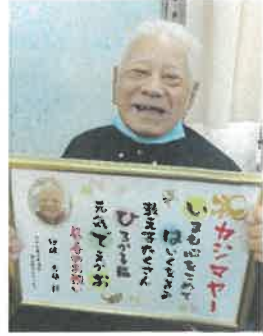 カジマヤー
いまも心をこめて
はいくをよみ
教え子たくさん
ひろがる輪
元気でえがお